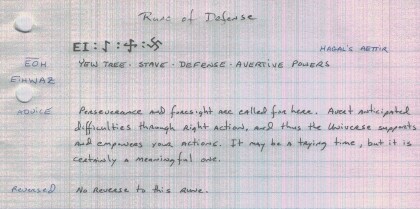 Rune of Defense
EI : ᛇ : 卐
HAGAL'S AETTIR
EOH
YEW TREE · STAVE · DEFENSE · AVERTIVE POWERS
EIHWAZ
ADVICE
Perseverance and foresight are called for here. Avert anticipated
difficulties through right action, and thus the Universe supports
and empowers your actions. It may be a trying time, but it is
certainly a meaningful one.
REVERSED
No REVERSE TO THIS RUNE.